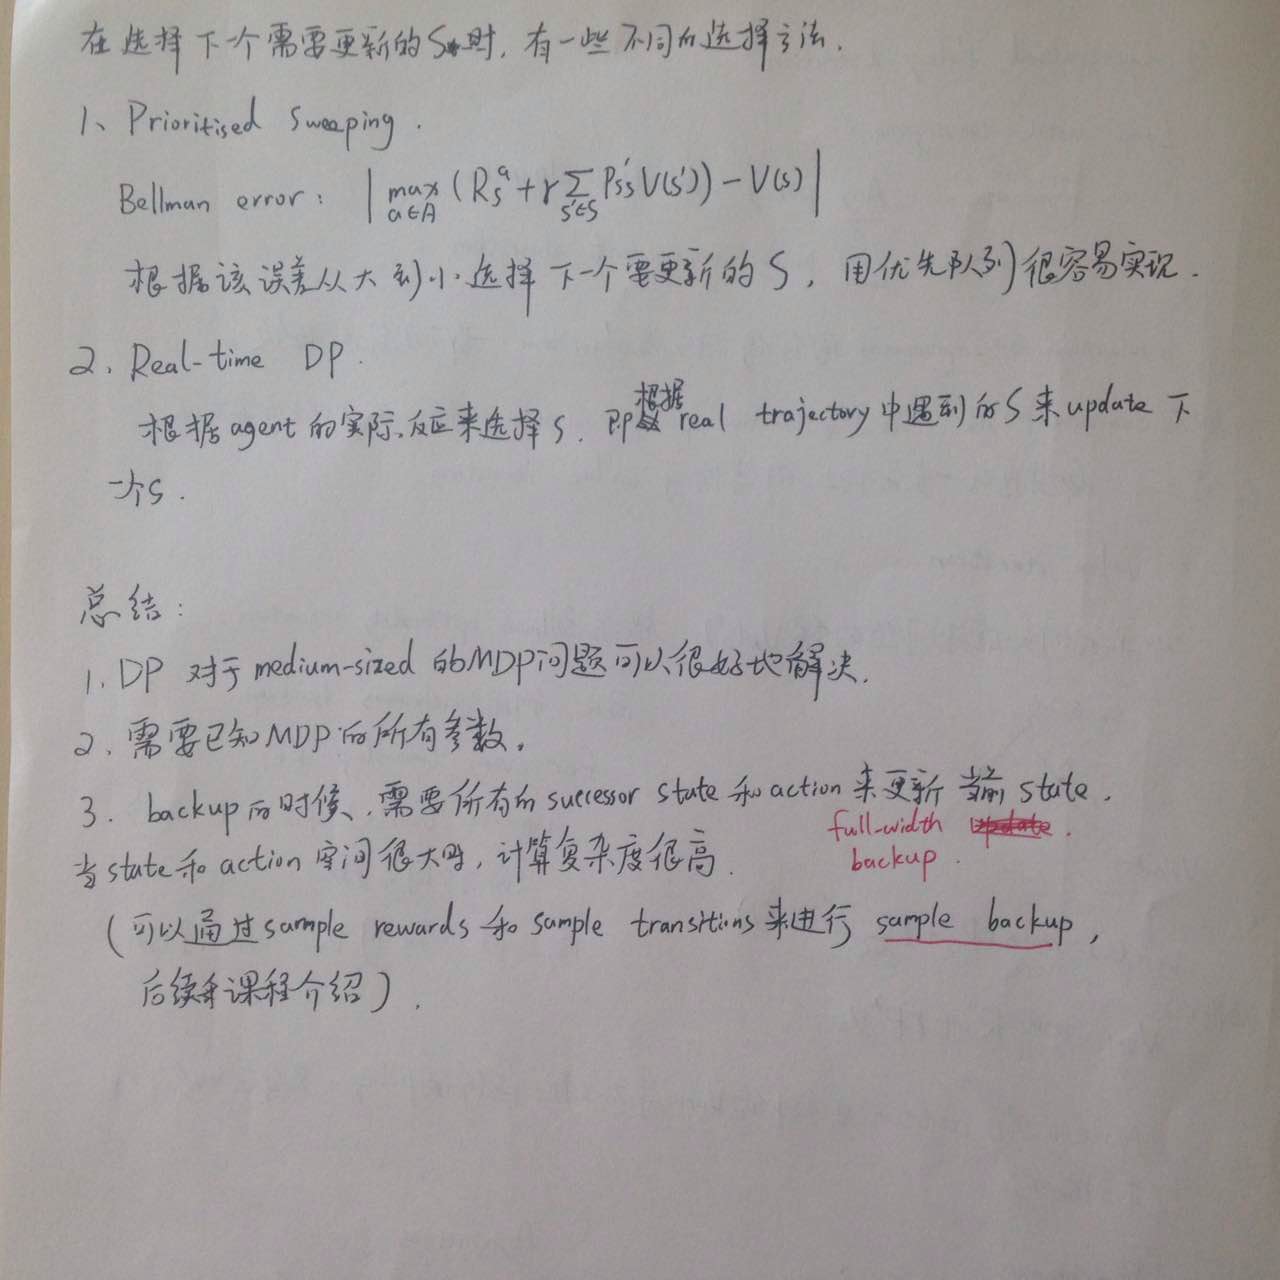 在选择下个需要更新的S时,有一些不同的选择方法.
1、Prioritised Sweeping.
Bellman error: | max_{a∈A} (R_s^a + γ Σ_{s'∈S} P_{ss'} V(s')) − V(s) |
根据该误差从大到小选择下一个需更新的S,用优先队列很容易实现.
2、Real-time DP.
根据agent的实际反应来选择S.即根据real trajectory中遇到的S来update下
一个S.
总结:
1. DP 对于medium-sized的MDP问题可以很好地解决.
2. 需要已知MDP的所有参数。
3. backup的时候、需要所有的successor state和action来更新当前state.
full-width update.
backup.
当state和action空间很大时,计算复杂度很高.
(可以通过sample rewards和sample transitions来进行sample backup,
后续课程介绍).